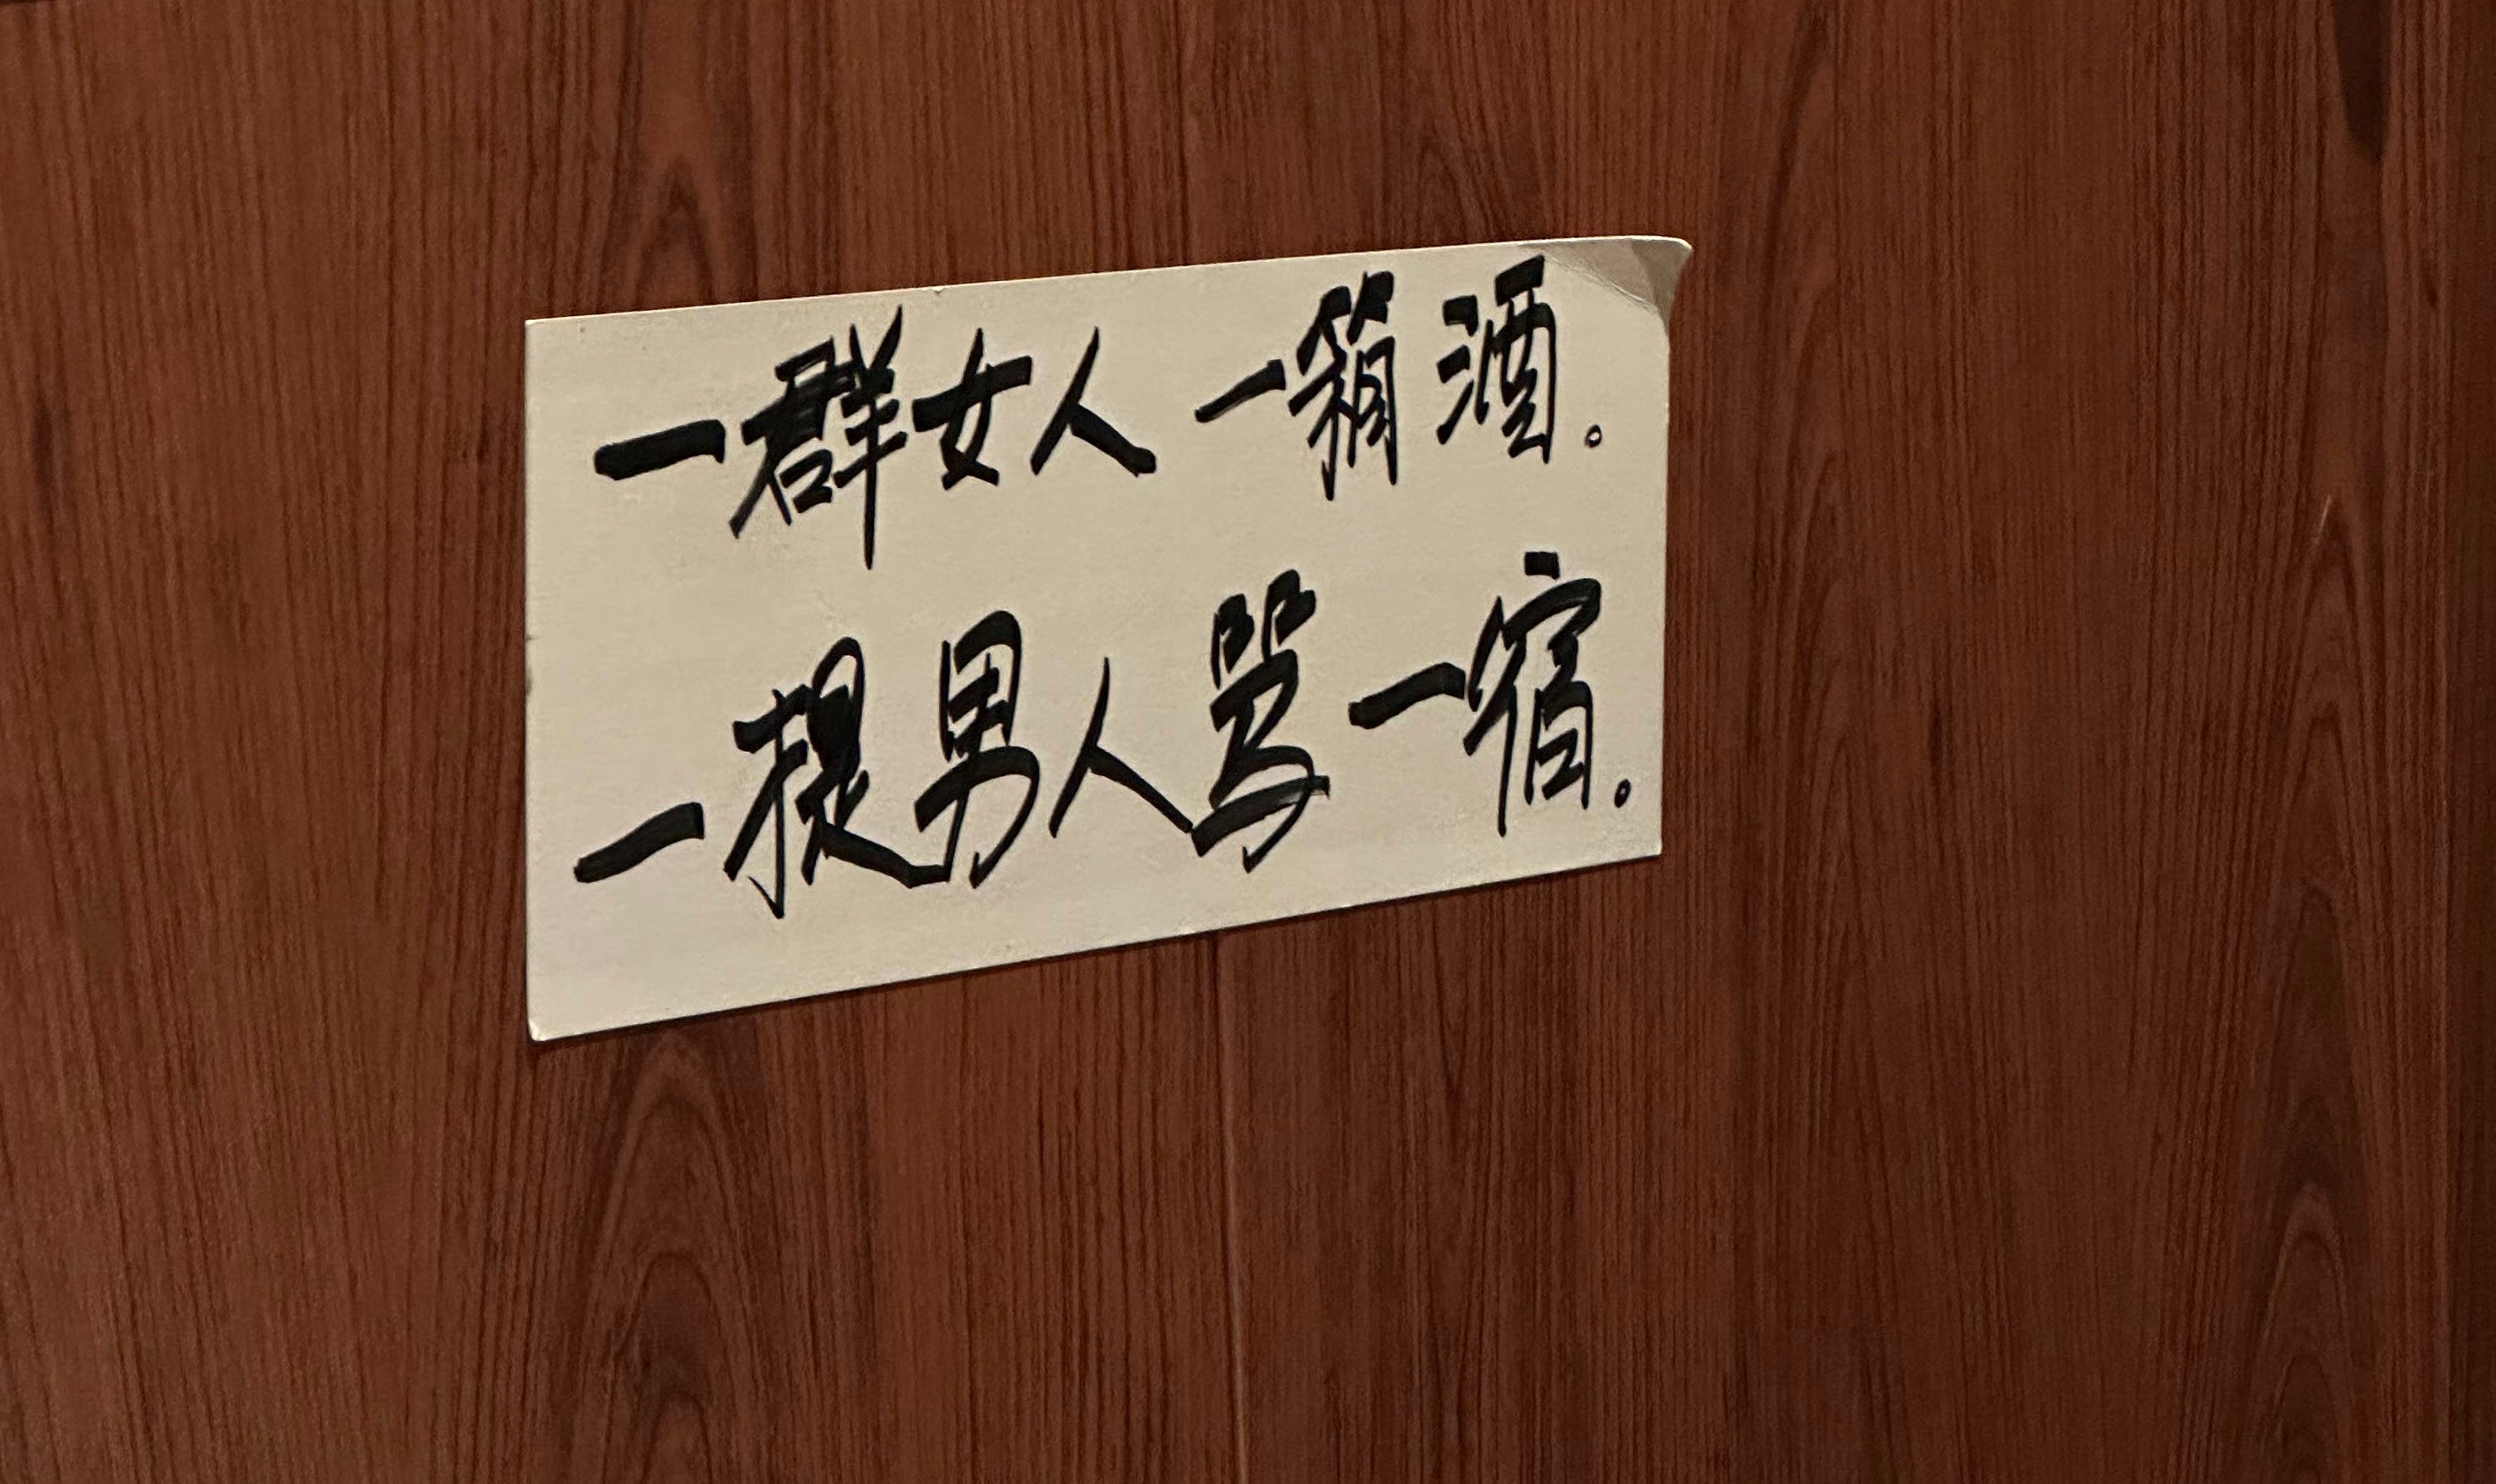 一群女人 一箱酒。
一提男人骂一宿。